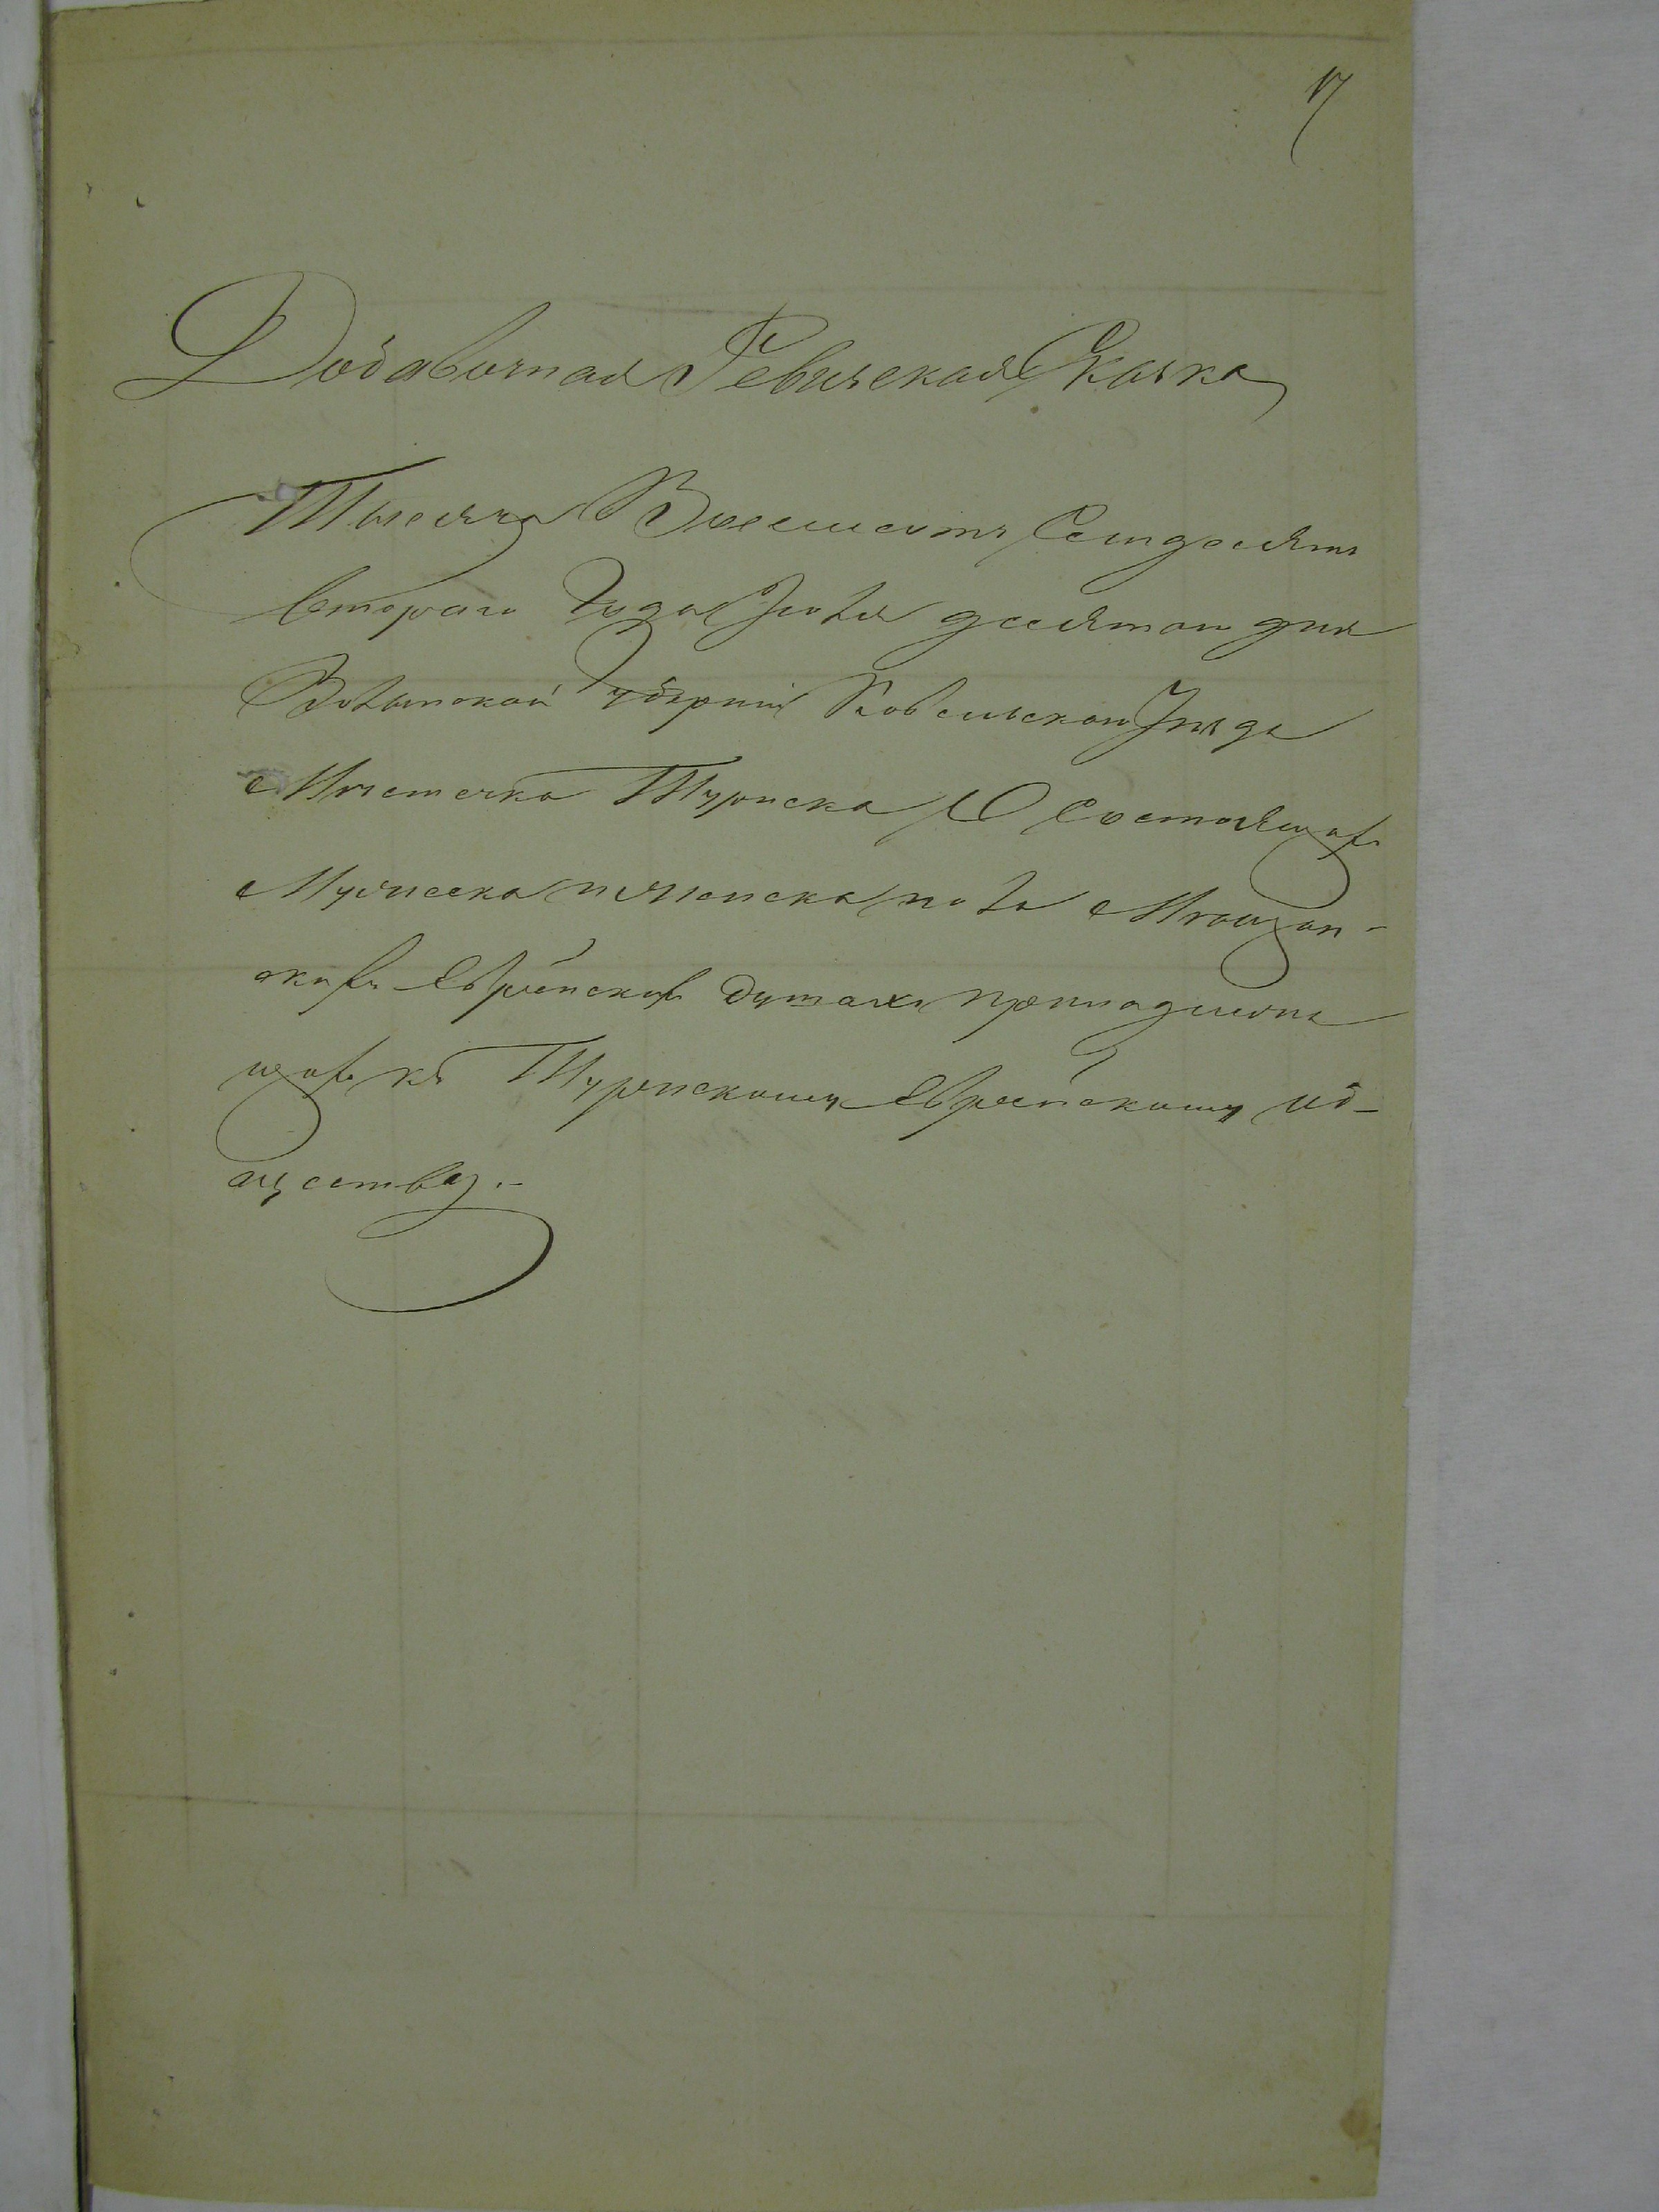 17
Добавочная Ревизская Сказка
Тысяча Восемьсотъ Семдесятъ
втораго Года Іюля десятаго дня
Волынской губерніи Ковельскаго Уѣзда
Мѣстечка Турийска О Состоящихъ
Мужеска и женска пола Мѣщан-
скихъ Еврейскихъ душахъ принадлежа
щихъ къ Турійскому Еврейскому об-
ществу.-